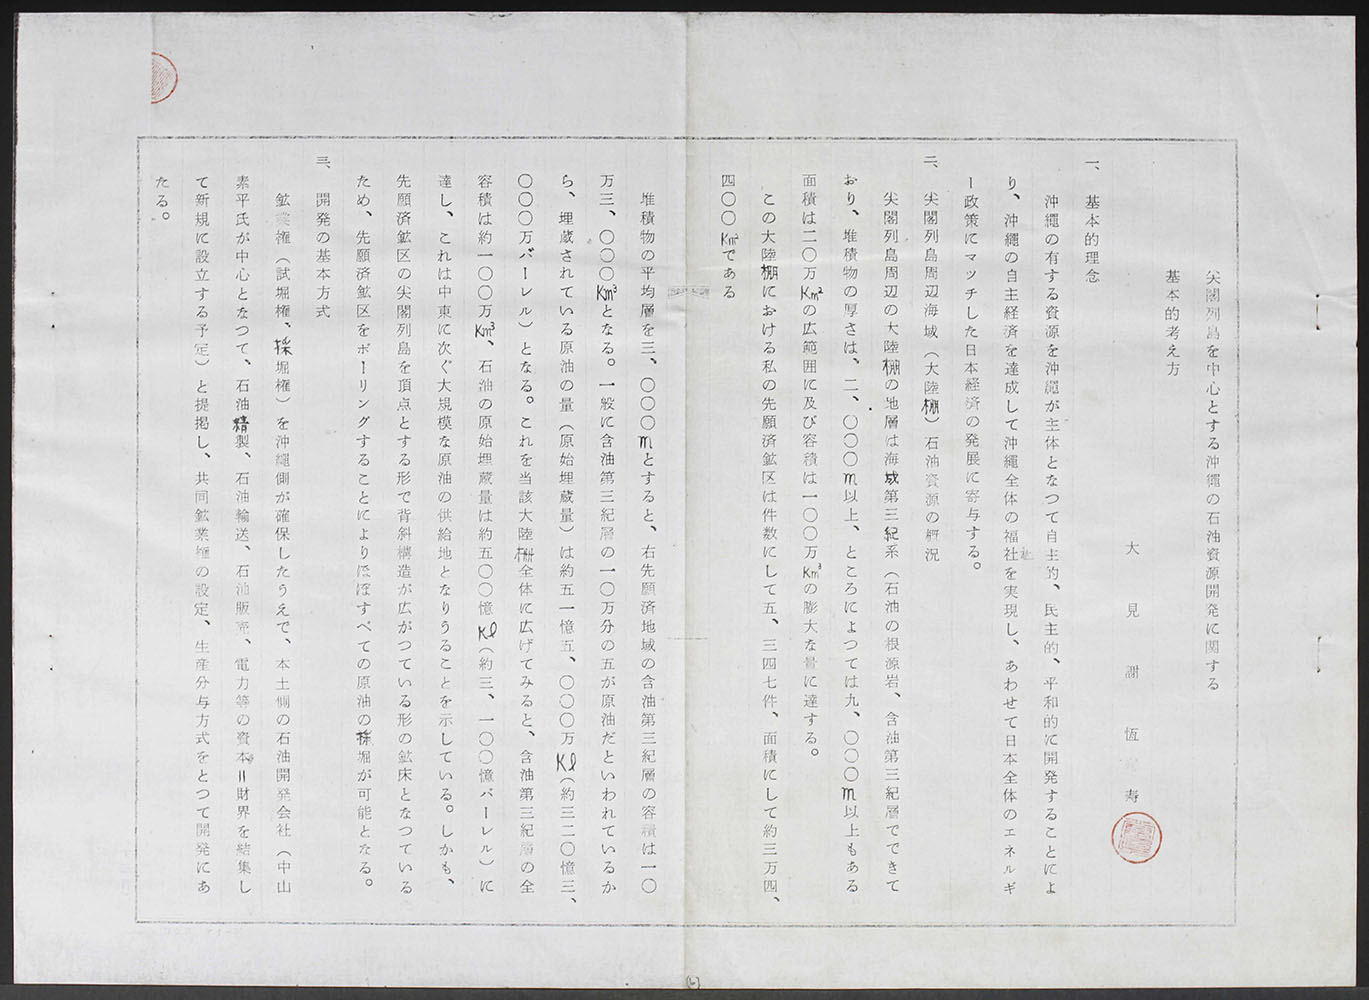 尖閣列島を中心とする沖繩の石油資源開発に関する
基本的考え方
大見謝恒寿
一、基本的理念
沖繩の有する資源を沖繩が主体となつて自主的、民主的、平和的に開発することによ
り、沖繩の自主経済を達成して沖繩全体の福祉を実現し、あわせて日本全体のエネルギ
ー政策にマッチした日本経済の発展に寄与する。
二、尖閣列島周辺海域（大陸棚）石油資源の概況
尖閣列島周辺の大陸棚の地層は海域第三紀系（石油の根源岩、含油第三紀層でできて
おり、堆積物の厚さは、二、〇〇〇m以上、ところによつては九、〇〇〇m以上もある
面積は二〇万Km²の広範囲に及び容積は一〇〇万Km³の膨大な量に達する。
この大陸棚における私の先願済鉱区は件数にして五、三四七件、面積にして約三万四、
四〇〇Km²である
堆積物の平均層を三、〇〇〇mとすると、右先願済地域の含油第三紀層の容積は一〇
万三、〇〇〇Km³となる。一般に含油第三紀層の一〇万分の五が原油だといわれているか
ら、埋蔵されている原油の量（原始埋蔵量）は約五一憶五、〇〇〇万Kl（約三二〇憶三、
〇〇〇万バーレル）となる。これを当該大陸棚全体に広げてみると、含油第三紀層の全
容積は約一〇〇万Km³、石油の原始埋蔵量は約五〇〇憶Kl（約三、一〇〇憶バーレル）に
達し、これは中東に次ぐ大規模な原油の供給地となりうることを示している。しかも、
先願済鉱区の尖閣列島を頂点とする形で背斜構造が広がつている形の鉱床となつている
ため、先願済鉱区をボーリングすることによりほぼすべての原油の採堀が可能となる。
三、開発の基本方式
鉱業権（試堀権、採堀権）を沖繩側が確保したうえで、本土側の石油開発会社（中山
素平氏が中心となつて、石油精製、石油輸送、石油販売、電力等の資本＝財界を結集し
て新規に設立する予定）と提携し、共同鉱業権の設定、生産分与方式をとつて開発にあ
たる。